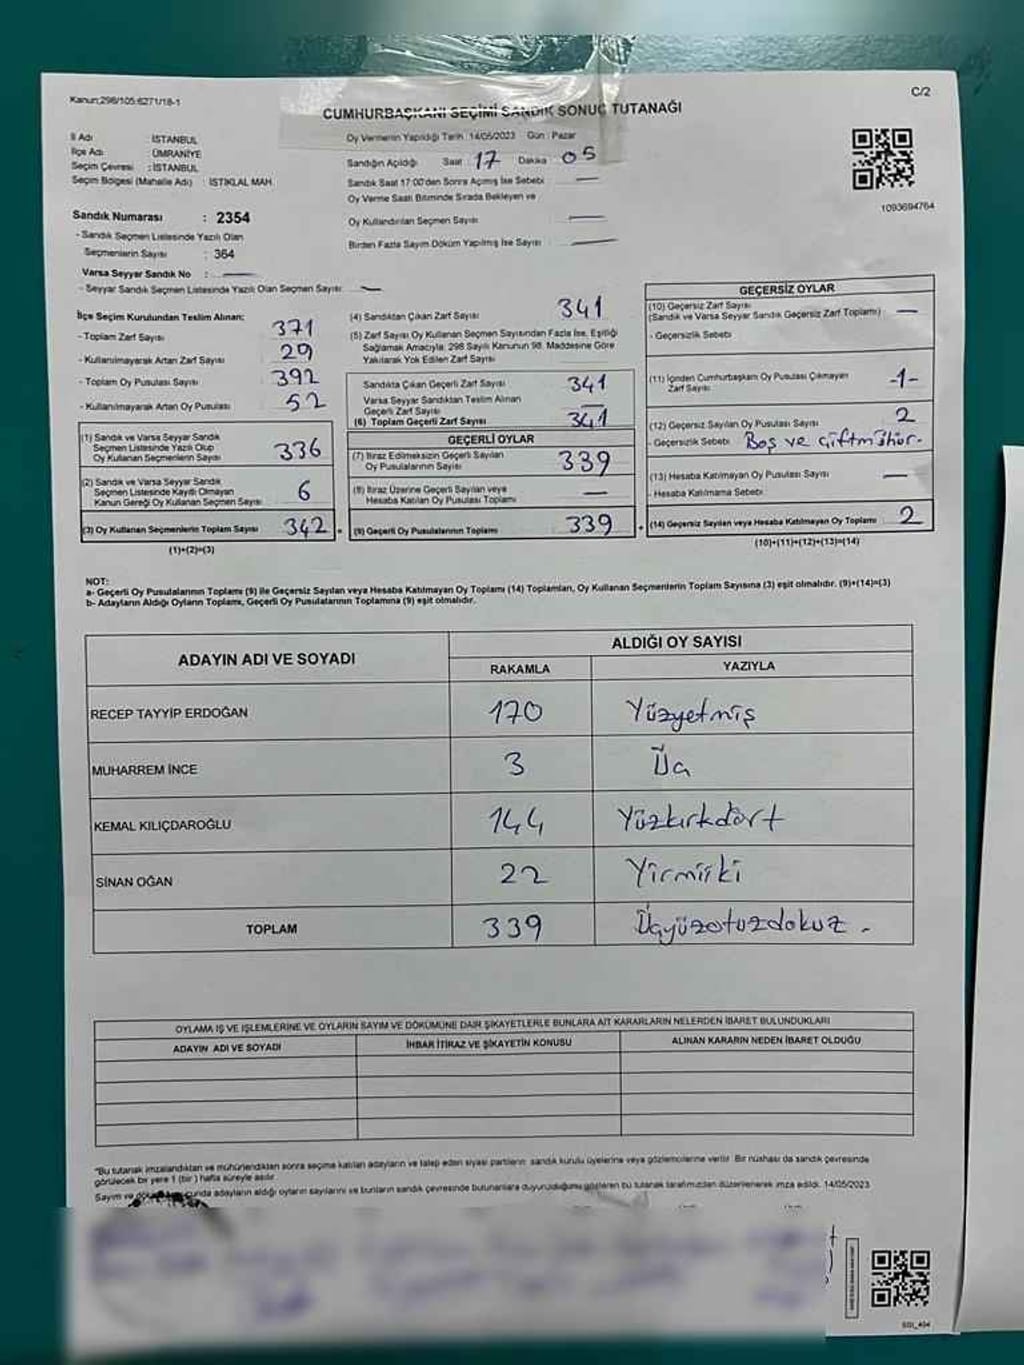 Kanun;298/105:6271/18-1
C/2
CUMHURBAŞKANI SEÇİMİ SANDIK SONUÇ TUTANAĞI
İl Adı : İSTANBUL
İlçe Adı : ÜMRANİYE
Seçim Çevresi : İSTANBUL
Seçim Bölgesi (Mahalle Adı) : İSTİKLAL MAH.
Oy Vermenin Yapıldığı Tarih :14/05/2023 Gün : Pazar
Sandığın Açıldığı Saat 17 Dakika 05
Sandık Saat 17:00'den Sonra Açılmış İse Sebebi —
Oy Verme Saati Bitiminde Sırada Bekleyen ve
Oy Kullandırılan Seçmen Sayısı —
Birden Fazla Sayım Döküm Yapılmış İse Sayısı —
1093694764
Sandık Numarası : 2354
- Sandık Seçmen Listesinde Yazılı Olan
Seçmenlerin Sayısı : 364
Varsa Seyyar Sandık No : —
- Seyyar Sandık Seçmen Listesinde Yazılı Olan Seçmen Sayısı: —
İlçe Seçim Kurulundan Teslim Alınan:
- Toplam Zarf Sayısı 371
- Kullanılmayarak Artan Zarf Sayısı 29
- Toplam Oy Pusulası Sayısı 392
- Kullanılmayarak Artan Oy Pusulası 52
(1) Sandık ve Varsa Seyyar Sandık
Seçmen Listesinde Yazılı Olup
Oy Kullanan Seçmenlerin Sayısı 336
(2) Sandık ve Varsa Seyyar Sandık
Seçmen Listesinde Kayıtlı Olmayan
Kanun Gereği Oy Kullanan Seçmen Sayısı 6
(3) Oy Kullanan Seçmenlerin Toplam Sayısı 342 =
(1)+(2)=(3)
(4) Sandıktan Çıkan Zarf Sayısı 341
(5) Zarf Sayısı Oy Kullanan Seçmen Sayısından Fazla İse, Eşitliği
Sağlamak Amacıyla; 298 Sayılı Kanunun 98. Maddesine Göre
Yakılarak Yok Edilen Zarf Sayısı
Sandıkta Çıkan Geçerli Zarf Sayısı 341
Varsa Seyyar Sandıktan Teslim Alınan
Geçerli Zarf Sayısı —
(6) Toplam Geçerli Zarf Sayısı 341
GEÇERLİ OYLAR
(7) İtiraz Edilmeksizin Geçerli Sayılan
Oy Pusulalarının Sayısı 339
(8) İtiraz Üzerine Geçerli Sayılan veya
Hesaba Katılan Oy Pusulası Toplamı —
(9) Geçerli Oy Pusulalarının Toplamı 339 +
GEÇERSİZ OYLAR
(10) Geçersiz Zarf Sayısı
(Sandık ve Varsa Seyyar Sandık Geçersiz Zarf Toplamı) —
- Geçersizlik Sebebi
(11) İçinden Cumhurbaşkanı Oy Pusulası Çıkmayan
Zarf Sayısı -1-
(12) Geçersiz Sayılan Oy Pusulası Sayısı 2
- Geçersizlik Sebebi Boş ve çiftmühür.
(13) Hesaba Katılmayan Oy Pusulası Sayısı —
- Hesaba Katılmama Sebebi
(14) Geçersiz Sayılan veya Hesaba Katılmayan Oy Toplamı 2
(10)+(11)+(12)+(13)=(14)
NOT:
a- Geçerli Oy Pusulalarının Toplamı (9) ile Geçersiz Sayılan veya Hesaba Katılmayan Oy Toplamı (14) Toplamları, Oy Kullanan Seçmenlerin Toplam Sayısına (3) eşit olmalıdır. (9)+(14)=(3)
b- Adayların Aldığı Oyların Toplamı, Geçerli Oy Pusulalarının Toplamına (9) eşit olmalıdır.
ADAYIN ADI VE SOYADI
ALDIĞI OY SAYISI
RAKAMLA YAZIYLA
RECEP TAYYİP ERDOĞAN 170 Yüzyetmiş
MUHARREM İNCE 3 Üç
KEMAL KILIÇDAROĞLU 144 Yüzkırkdört
SİNAN OĞAN 22 Yirmiiki
TOPLAM 339 Üçyüzotuzdokuz -
OYLAMA İŞ VE İŞLEMLERİNE VE OYLARIN SAYIM VE DÖKÜMÜNE DAİR ŞİKAYETLERLE BUNLARA AİT KARARLARIN NELERDEN İBARET BULUNDUKLARI
ADAYIN ADI VE SOYADI İHBAR İTİRAZ VE ŞİKAYETİN KONUSU ALINAN KARARIN NEDEN İBARET OLDUĞU
"Bu tutanak imzalandıktan ve mühürlendikten sonra seçime katılan adayların ve talep eden siyasi partilerin sandık kurulu üyelerine veya gözlemcilerine verilir. Bir nüshası da sandık çevresinde
görülecek bir yere 1 (bir) hafta süreyle asılır.
Sayım ve adayların aldığı oyların sayılarını ve bunların sandık çevresinde bulunanlara duyurulduğunu gösteren bu tutanak tarafımızdan düzenlenerek imza edildi. 14/05/2023